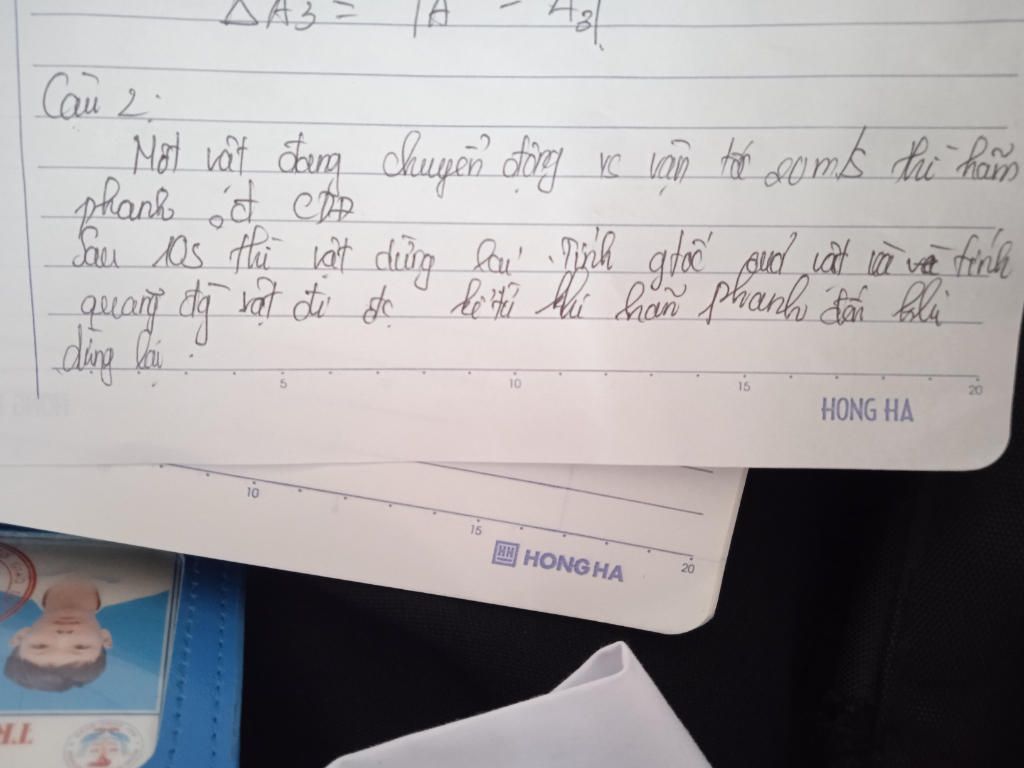 ΔA3 = |A - A3|
Câu 2:
Một vật đang chuyển động vs vận tốc 20m/s thì hãm
phanh
Sau 10s thì vật dừng lại. Tính gtốc quả vật và vẽ tính
quang đg vật đi đc kể từ khi hãm phanh đến khi
dừng lại.
5 10 15 20
HONG HA
10 15 20
HH HONG HA
TR